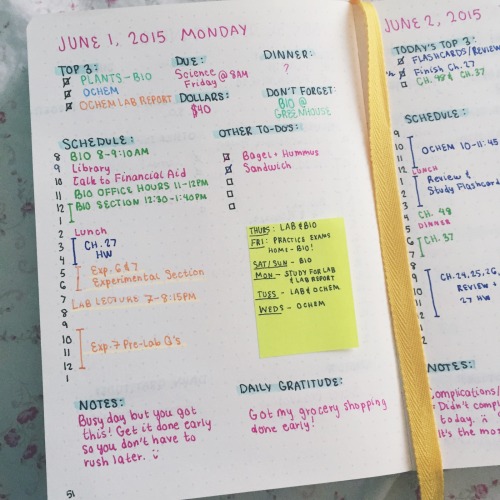 JUNE 1, 2015 MONDAY
TOP 3:
PLANTS-BIO
OCHEM
OCHEM LAB REPORT
DUE:
Science
Friday @ 8AM
DOLLARS:
$40
DINNER:
?
DON'T FORGET:
BIO @
GREENHOUSE
SCHEDULE:
8 BIO 8-9:10AM
9 Library
10 Talk to Financial Aid
11 BIO OFFICE HOURS 11-12PM
12 BIO SECTION 12:30-1:40PM
1
2 Lunch
3 CH. 27
4 HW
5 Exp. 6 & 7
6 Experimental Section
7 LAB LECTURE 7-8:15PM
8
9
10
11 Exp. 7 Pre-Lab Q's
12
1
OTHER TO-DOS:
Bagel + Hummus
Sandwich
THURS: LAB & BIO
FRI: PRACTICE EXAMS
HOME - BIO!
SAT/SUN - BIO
MON - STUDY FOR LAB
& LAB REPORT
TUES - LAB & OCHEM
WEDS - OCHEM
NOTES:
Busy day but you got
this! Get it done early
so you don't have to
rush later. :)
DAILY GRATITUDE:
Got my grocery shopping
done early!
51
JUNE 2, 2015
TODAY'S TOP 3:
FLASHCARDS/REVIEW
Finish Ch. 27
CH. 48 & CH. 37
SCHEDULE:
9
10 OCHEM 10-11:45
11
12 LUNCH
1 Review &
2 Study Flashcard
3
4 CH. 48
5 DINNER
6 CH. 37
7
8
9 CH. 24, 25, 26,
10 REVIEW +
11 27 HW
12
NOTES:
Complications/
Didn't comp
today.
It's the mo